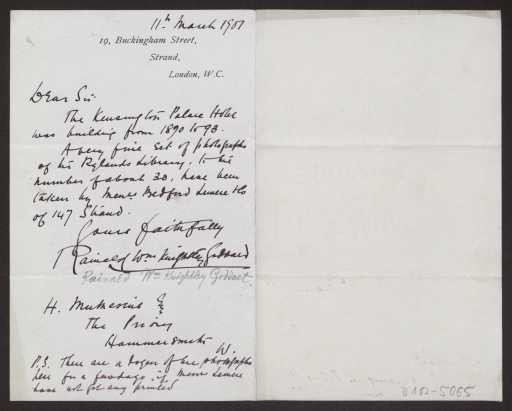 11th March 1901
19, Buckingham Street,
Strand,
London, W.C.
Dear Sir
The Kensington Palace Hotel
was building from 1890 to 98.
A very fine set of photographs
of the Rylands Library, to the
number of about 30, have been
taken by Messrs Bedford Lemere & Co
of 147 Strand.
Yours faithfully
Rainald Wm Knightley Goddard
Rainald Wm Knightley Goddart.
H. Muthesius Esq
The Priory
Hammersmith
W.
P.S. There are a dozen of the photographs
here for a if Messrs Lemere
have not got any printed